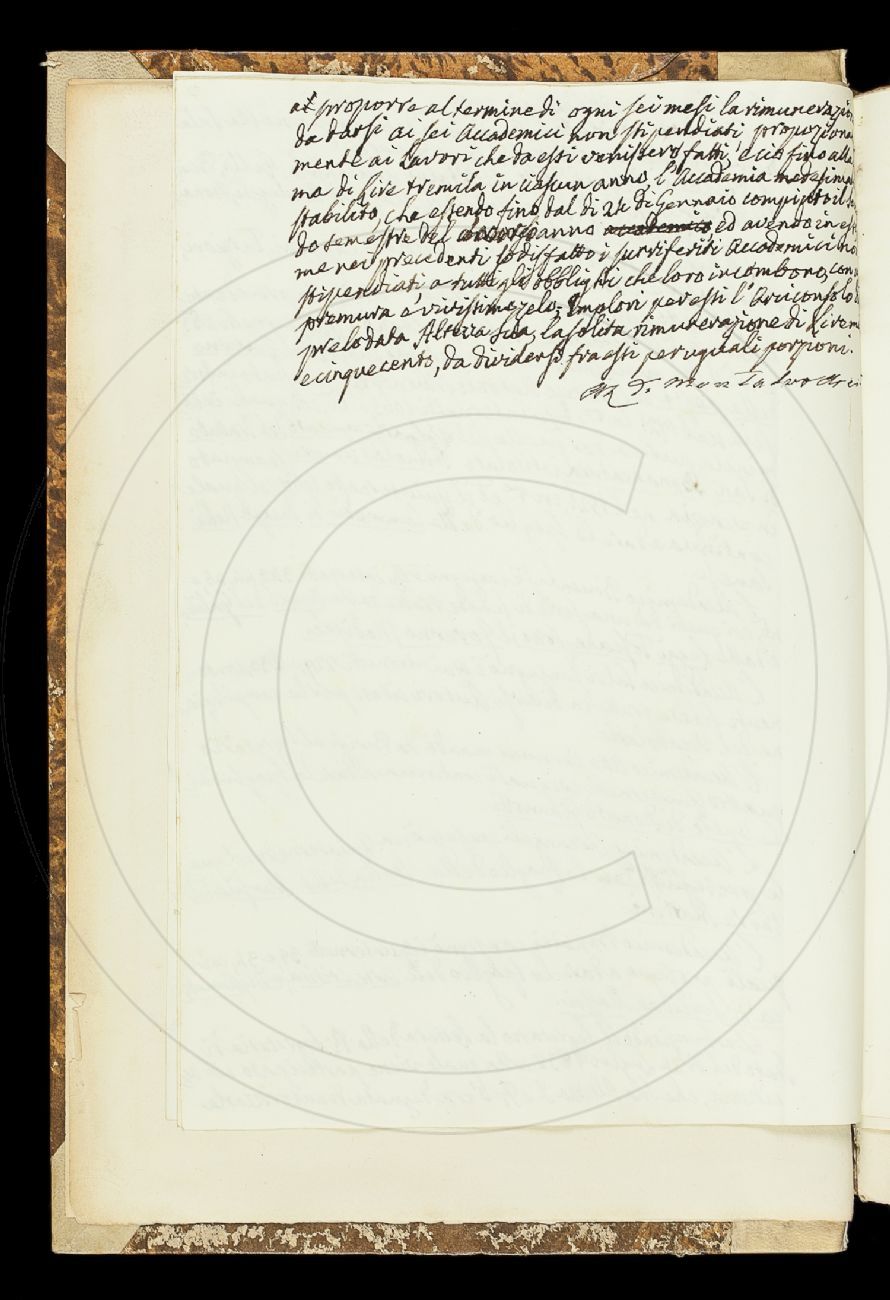 a proporre al termine di ogni sei mesi la rimunerazio
da darsi ai sei Accademici non stipendiati proporziona
mente ai Lavori che da essi venissero fatti, e ciò fino alla
ma di Lire tremila in ciascun anno l'Accademia medesima
stabilito, che essendo fino dal di 24 di Gennaio compiuto il
do semestre del decorso anno accademico, ed avendo in es
me nei precedenti sodisfatto i surriferiti Accademici no
stipendiati a tutti gli obblighi che loro incombono, con
premura e vivissimo zelo, Implori per essi l'Arciconsolo
prelodata Altezza Sua, la solita rimunerazione di Lire m
e cinquecento, da dividersi fra essi per uguali porzioni.